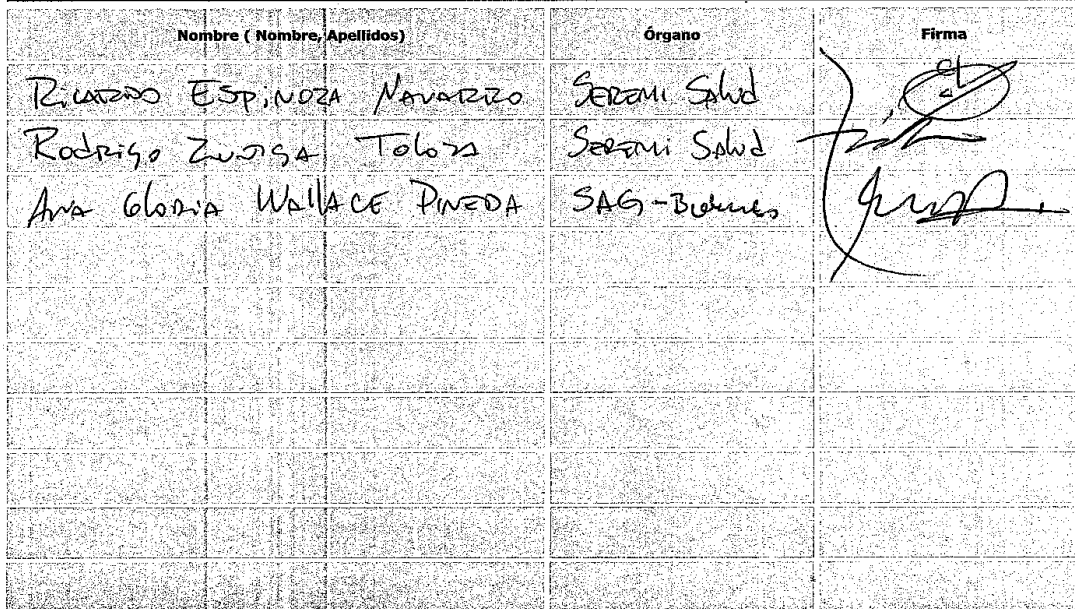 Nombre ( Nombre, Apellidos) Órgano Firma
Ricardo Espinoza Navarro Seremi Salud
Rodrigo Zuñiga Toloza Seremi Salud
Ana Gloria Wallace Pineda SAG-Bulnes